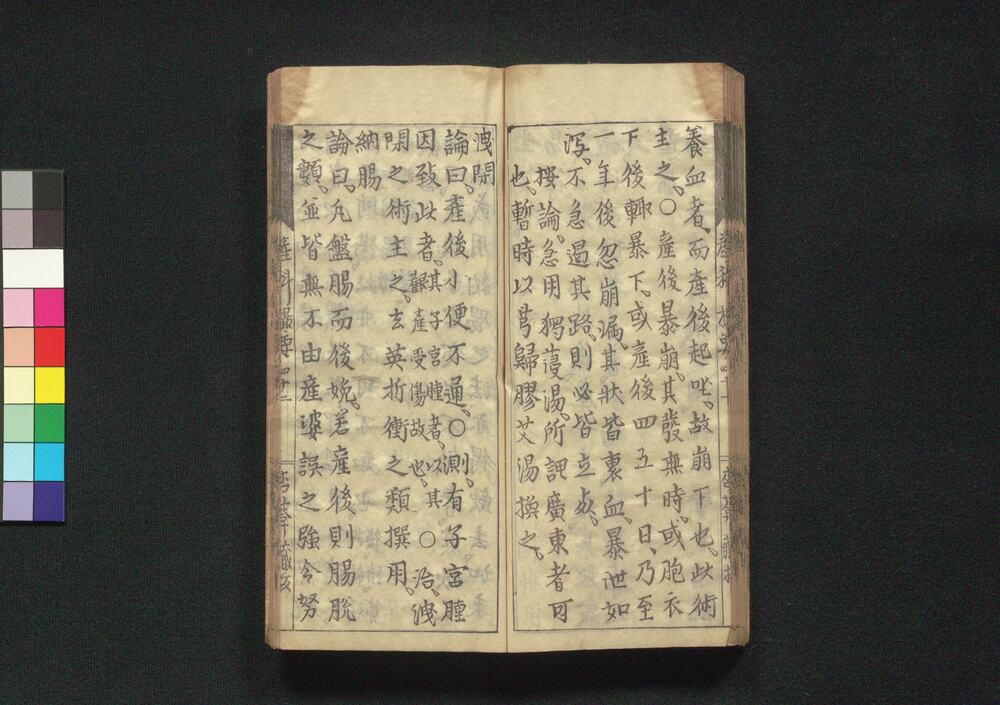 養血者、而產後起㘴、故崩下也、此術
主之、〇產後暴崩、其發無時、或胞衣
下後輙暴下、或產後四五十日、乃至
一年後忽崩漏、其狀皆裏血、暴泄如
瀉、不急遏其路、則必皆立死、
按論、急用獨葠湯、所謂廣東者可
也、暫時以芎歸膠艾湯換之、
洩閉
論曰、產後小便不通、〇測、有子宮腫
因致此者、其子宮腫者、以其
艱產受傷故也、〇治、洩
閉之術主之、玄英折衝之類撰用、
納腸
論曰、凡盤腸而後娩、若產後、則腸脫
之顙、並皆無不由產婆誤之強令努
產科
產科 撮要 四十二